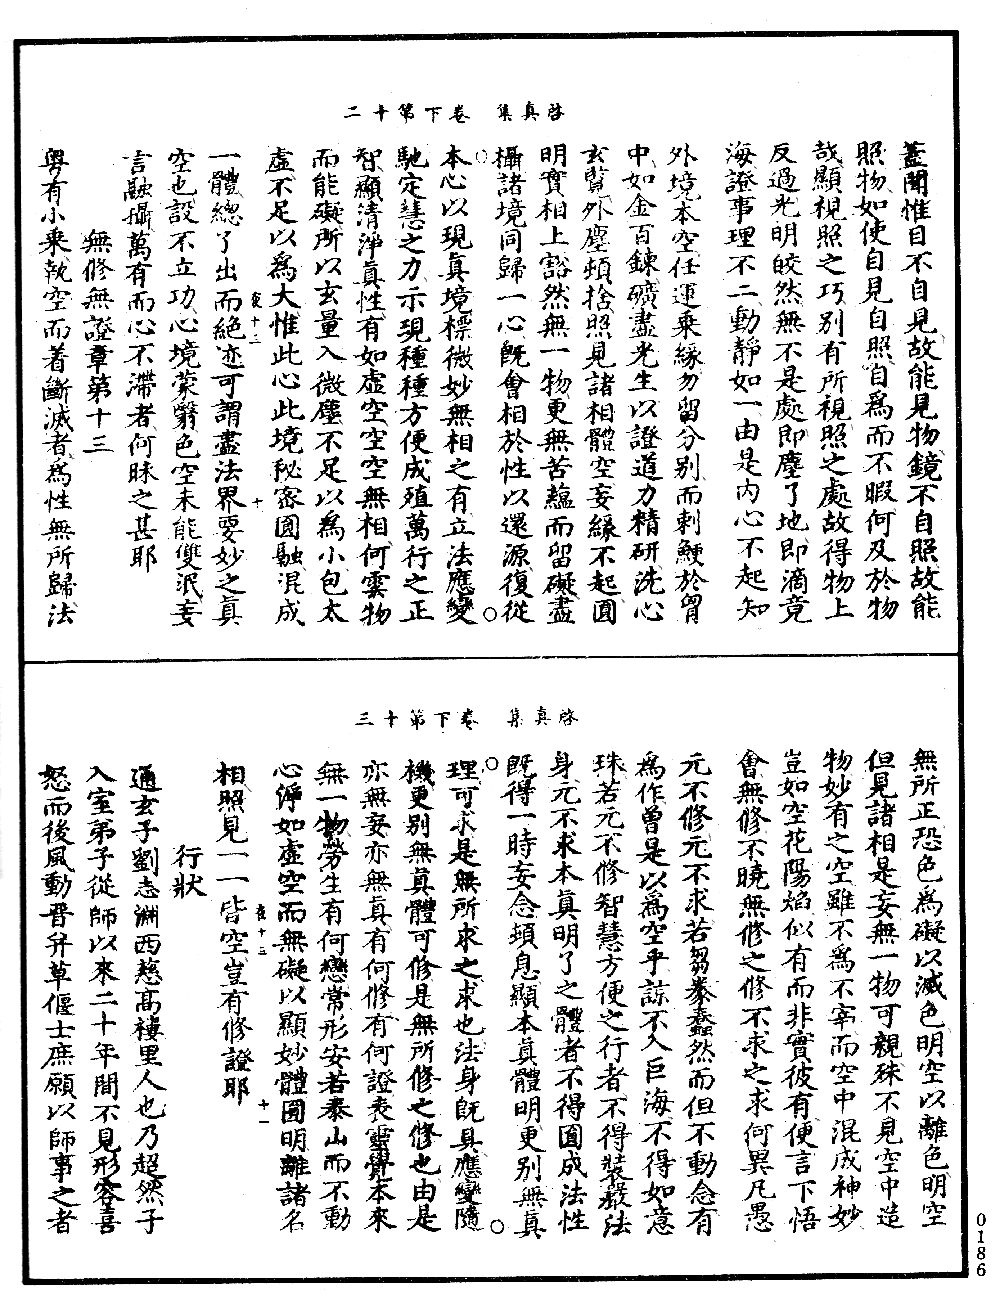 啓真集 卷下第十二
蓋聞惟目不自見故能見物鏡不自照故能
照物如使自見自照自爲而不暇何及於物
哉顯視照之巧別有所視照之處故得物上
反過光明皎然無不是處即塵了地即滴竟
海證事理不二動靜如一由是内心不起知
外境本空任運乘緣勿留分別而剌鯁於胷
中如金百鍊礦盡光生以證道力精研洗心
玄覽外塵頓捨照見諸相體空妄緣不起圓
明實相上豁然無一物更無苦蘊而留礙盡
攝諸境同歸一心旣會相於性以還源復從
本心以現真境標微妙無相之有立法應變
馳定慧之力示現種種方便成殖萬行之正
智顯清淨真性有如虛空空空無相何雲物
而能礙所以玄量入微塵不足以爲小包太
虛不足以爲大惟此心此境秘密圓融混成
一體總了出而絕迹可謂盡法界要妙之真
空也設不立功心境蒙翳色空未能雙泯妄
言融攝萬有而心不滯者何昧之甚耶
無修無證章第十三
粤有小乘執空而著斷滅者爲性無所歸法
夜十二
十
啓真集 卷下第十三
無所正恐色爲礙以滅色明空以離色明空
但見諸相是妄無一物可親殊不見空中造
物妙有之空雖不爲不宰而空中混成神妙
豈如空花陽焰似有而非實彼有便言下悟
會無修不曉無修之修不求之求何異凡愚
元不修元不求若芻豢蠢然而但不動念有
爲作曾是以爲空乎諒不入巨海不得如意
珠若元不修智慧方便之行者不得裝嚴法
身元不求本真明了之體者不得圓成法性
旣得一時妄念頓息顯本真體明更別無真
理可求是無所求之求也法身旣具應變隨
機更別無真體可修是無所修之修也由是
亦無妄亦無真有何修有何證夫靈覺本來
無一物勞生有何戀常形安若泰山而不動
心淨如虛空而無礙以顯妙體圓明離諸名
相照見一一皆空豈有修證耶
夜十三
十一
行狀
通玄子劉志淵西慈高樓里人也乃超然子
入室弟子從師以來二十年間不見形容喜
怒而後風動晉并草偃士庶願以師事之者
0186